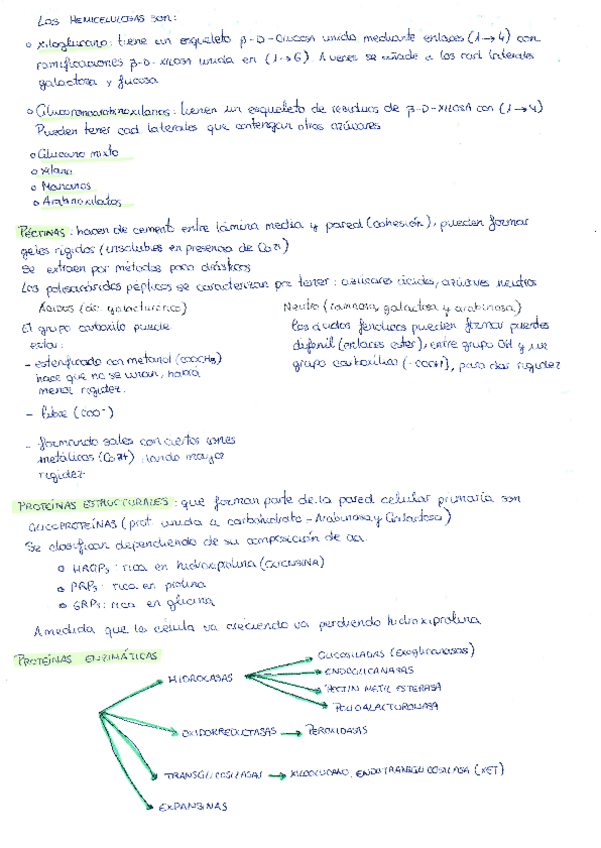 Las HEMICELULOSAS son:
o Xiloglucano: tiene un esqueleto β-D-Glucosa unida mediante enlaces (1→4) con
ramificaciones β-D-Xilosa unida en (1→6). A veces se añade a las cad laterales
galactosa y fucosa
o Glucoronoarabinoxilanos: tienen un esqueleto de residuos de β-D-XILOSA con (1→4)
Pueden tener cad. laterales que contengan otros azúcares
o Glucano mixto
o Xilano
o Mananos
o Arabinoxilatos
PÉCTINAS: hacen de cement entre lámina media y pared (cohesión), pueden formar
geles rígidos (insolubles en presencia de Ca2+)
Se extraen por métodos poco drásticos
Los polisacáridos pépticos se caracterizan por tener: azúcares ácidos, azúcares neutros
Ácidos (ác. galacturónico)
El grupo carboxilo puede
estar:
- esterificado con metanol (COOCH3)
hace que no se unan, habrá
menor rigidez.
- libre (COO-)
- formando sales con ciertos iones
metálicos (Ca2+) dando mayor
rigidez
Neutro (ramnosa, galactosa y arabinosa)
Los ácidos fenólicos pueden formar puentes
difenil (enlaces ester), entre grupo OH y un
grupo carboxílico (-COOH), para dar rigidez
PROTEÍNAS ESTRUCTURALES: que forman parte de la pared celular primaria son
GLICOPROTEÍNAS (prot unida a carbohidrato - Arabinosa y Galactosa)
Se clasifican dependiendo de su composición de aa.
o HRGPs: rica en hidroxiprolina (GLICUSINA)
o PRPs: rica en prolina
o GRPs: rica en glicina
A medida que la célula va creciendo va perdiendo hidroxiprolina
PROTEÍNAS ENZIMÁTICAS
HIDROLASAS
GLICOSILADAS (Exoglicanasas)
ENDOGLICANASAS
PECTIN METIL ESTERASA
POLIGALACTURONASA
OXIDORREDUCTASAS → PEROXIDASAS
TRANSGLICOSILASAS → XILOGLUCANO, ENDOTRANSGLICOSILASA (XET)
EXPANSINAS